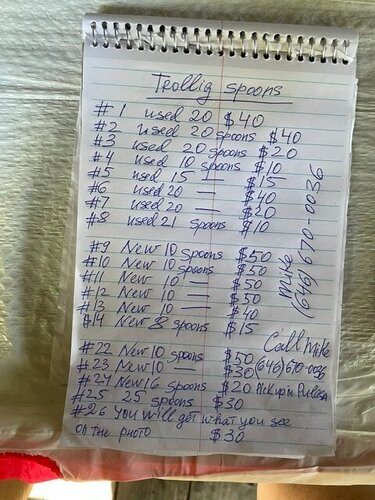 Trollig spoons
#1 used 20 $40
#2 used 20 spoons $40
#3 used 20 spoons $20
#4 used 10 spoons $10
#5 used 15 — $15
#6 used 20 — $40
#7 used 20 — $20
#8 used 21 spoons $10
#9 New 10 spoons $50
#10 New 10 spoons $50
#11 New 10 — $50
#12 New 10 — $50
#13 New 10 — $40
#14 New 8 spoons $15
Mike
(646) 670-0036
#22 New 10 spoons $50
#23 New 10 — $30
#24 New 16 spoons $20
#25 25 spoons $30
#26 you will get what you see
on the photo $30
Call Mike
(646) 670-0036
Pickup in